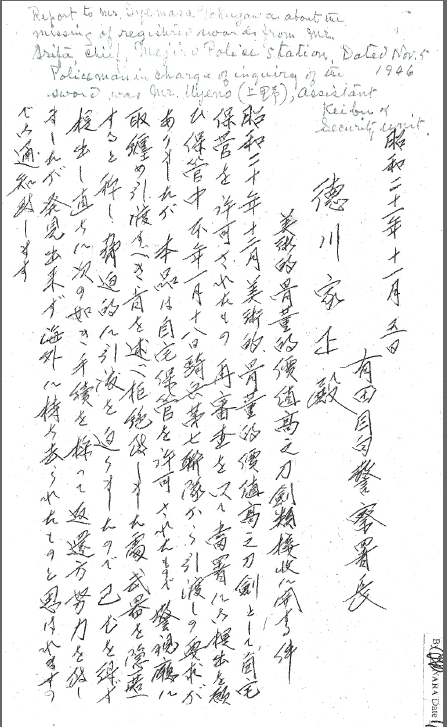 Report to Mr. Iyemasa Tokugawa about the
missing of registered swords from Mr.
Arita, Chief, Mejiro Police Station, Dated Nov. 5
1946
Policeman in charge of inquiry of the
sword was Mr. Uyeno (上野), Assistant
Keibu of
Security unit.
昭和二十一年十一月五日
有田目白警察署長
徳川家正殿
美術的骨董的價値高之刀劍類接收に関する件
昭和二十年十二月美術的骨董的價値高之刀劍として自宅
保管を許可されたもの再審査をする為当署に提出を願
ひ保管中本年一月十八日騎兵第七聯隊から引渡しの要求が
ありましたが本品は自宅保管を許可されたもので警視廳に
取纏め引渡すべき旨を述べ拒絶致しました處武器を隠匿
すると称し脅迫的に引渡を迫りましたので已むを得ず
提出し直ちに次の如き手續を採って返還方努力を致し
ましたが発見出来ず海外に持ち去られたものと思はれますの
で通知致します
NARA Date